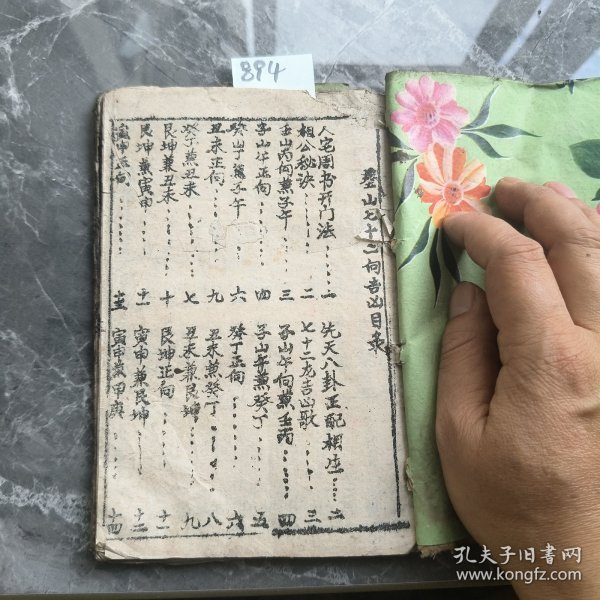 894
壑山七十二向吉凶目录
人宅周书开门法……二
先天八卦正配相生……二
相公秘诀……二
七十二龙吉凶歌……三
壬山丙向兼子午……三
子山午向兼壬丙……四
子山午正向……四
子山午兼癸丁……五
癸山丁兼子午……六
癸丁正向……六
丑未正向……九
丑未兼癸丁……八
癸丁兼丑未……七
丑未兼艮坤……九
艮坤兼丑未……十
艮坤正向……十一
艮坤兼寅申……十二
寅申兼艮坤……十二
寅申正向……
寅申兼甲庚……十四
孔夫子旧书网
www.kongfz.com